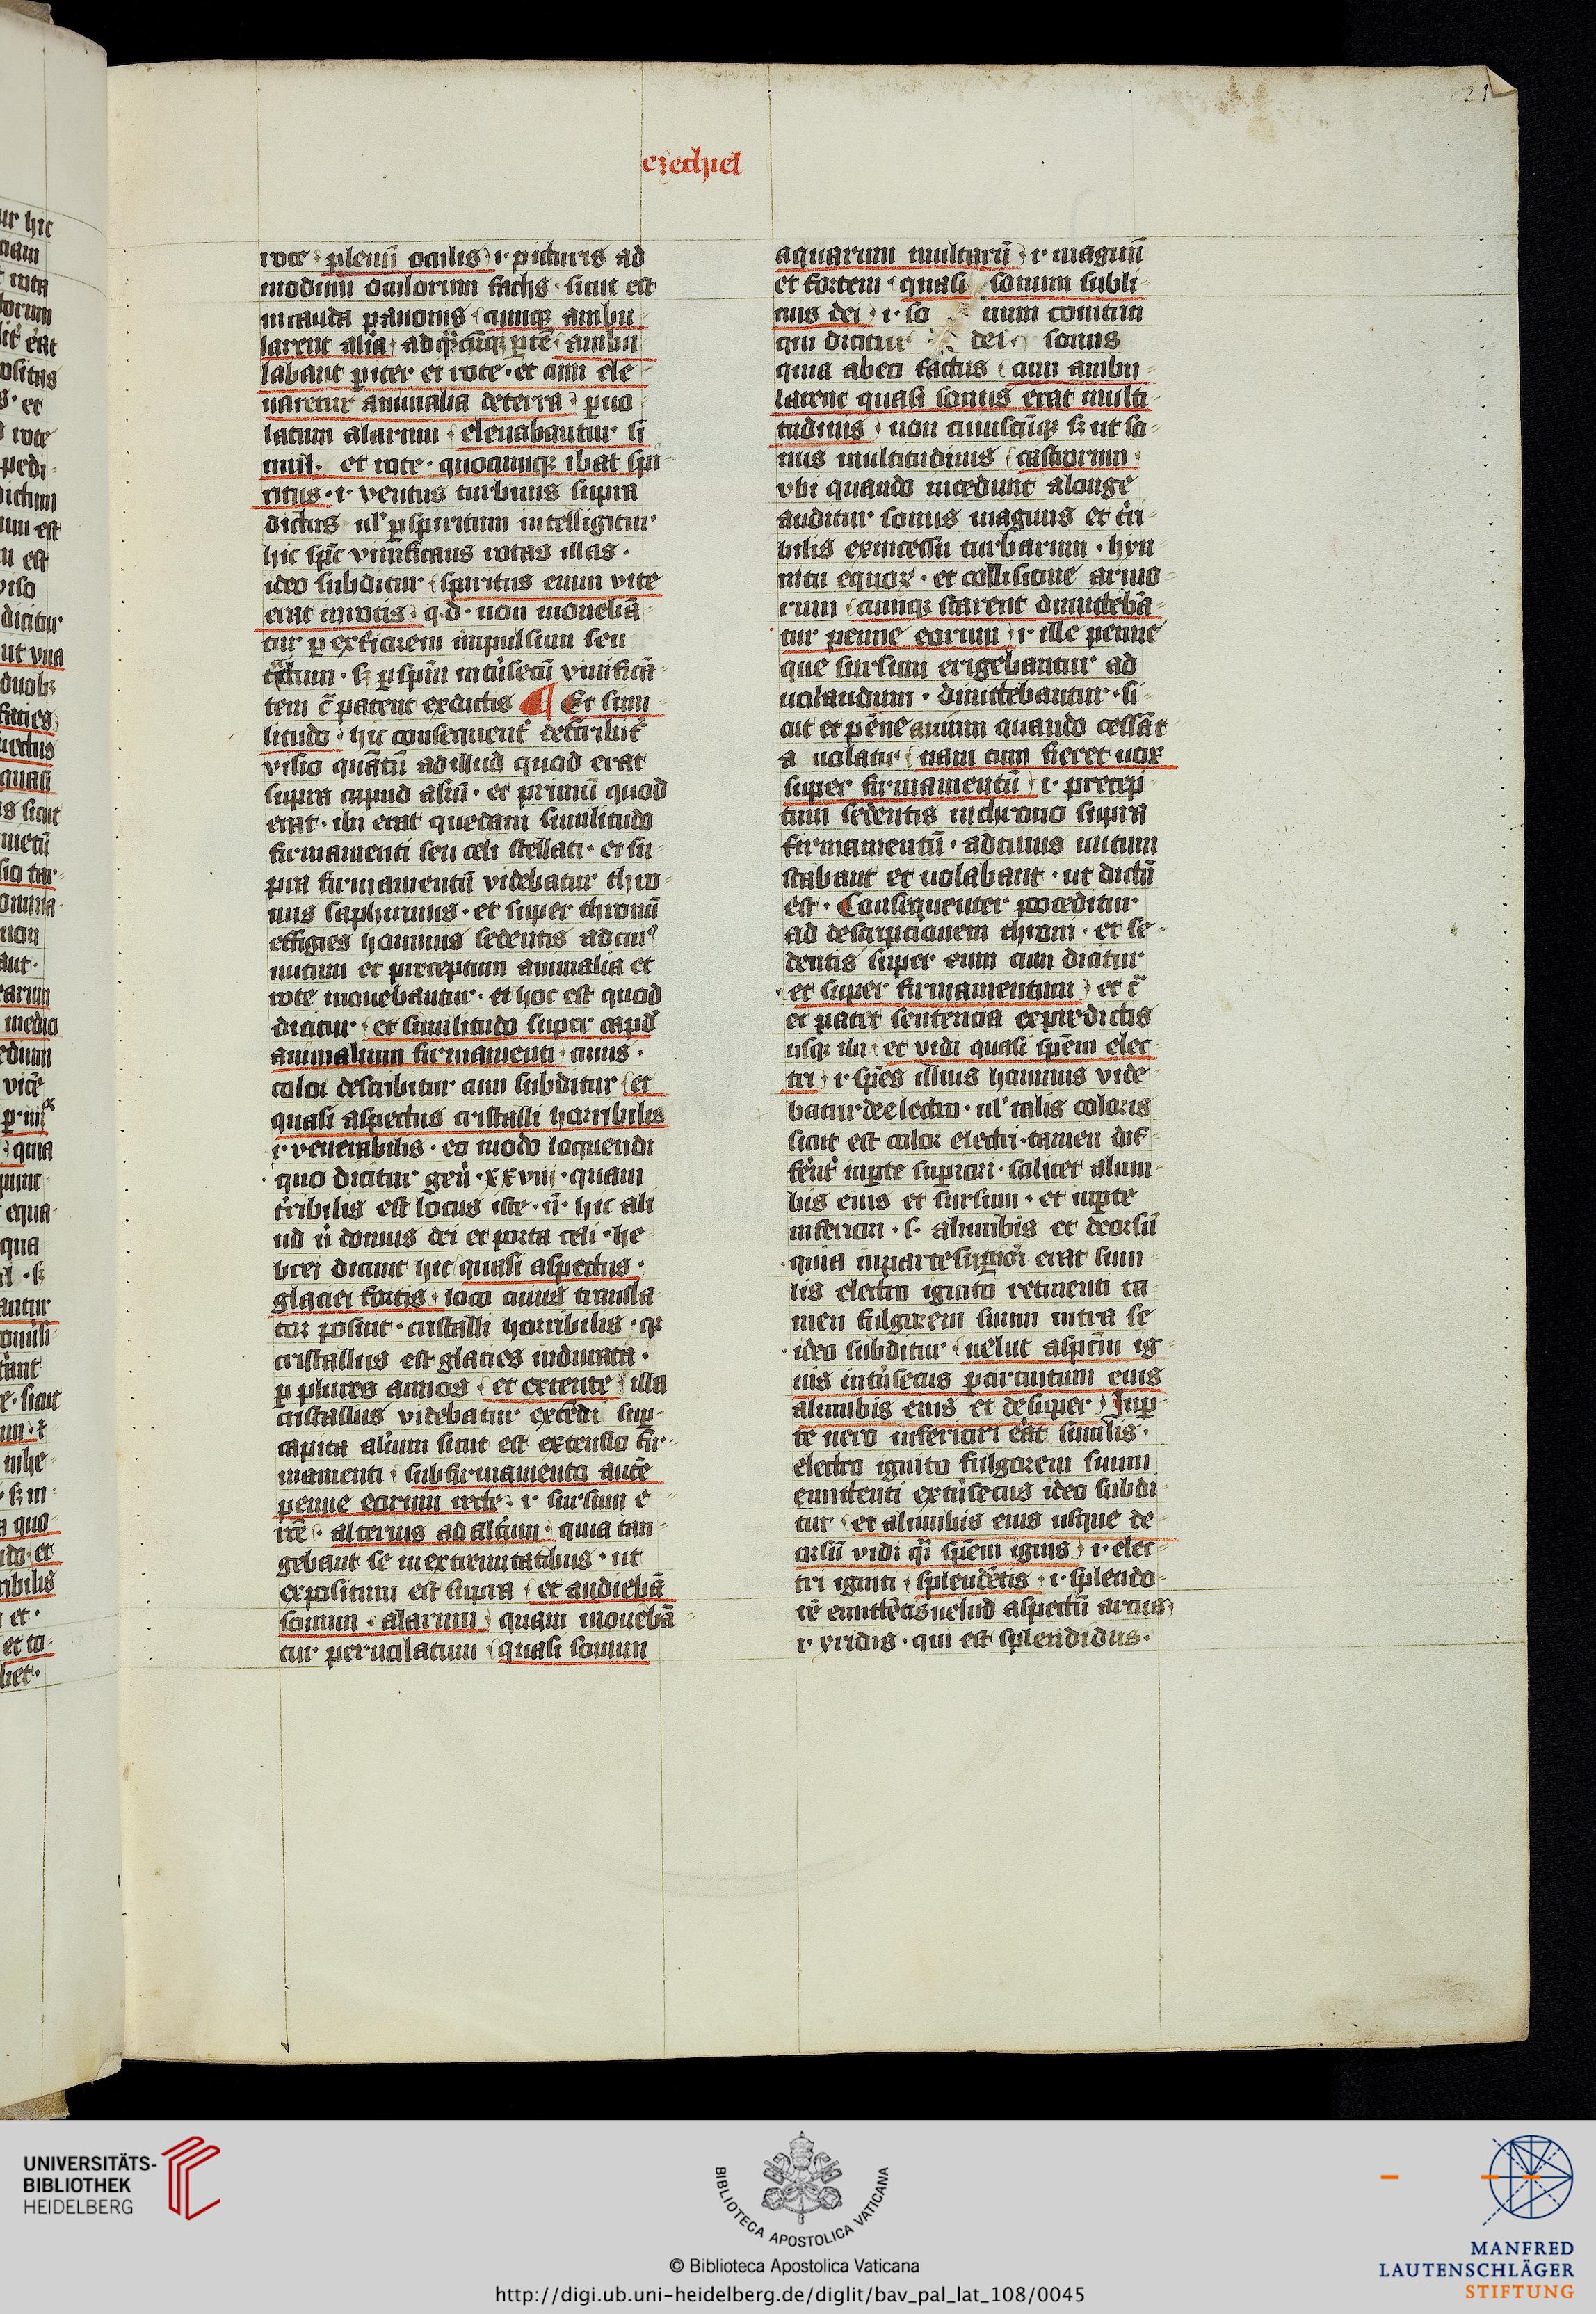 21
ezechiel
rote · plenū oculis · i · picturis ad
modum oculorum factis · sicut est
in cauda pauonis cumqꝫ ambu
larent alīa ad q̄cūqꝫ ꝑtē ambu
labant ꝑiter et rote · et cum ele
uaretur animalia de terra ꝑ uo
latum alarum eleuabantur si
mul · et rote · quocumqꝫ ibat spi
ritus · i · ventus turbinis supra
dictus ul' ꝑ spiritum intelligitur
hic spc̄ viuificans rotas illas ·
ideo subditur spiritus enim vite
erat in rotis q · d · non mouebā
tur ꝑ exteriorem impulsum seu
tractum · sꝫ ꝑ spm̄ intrīsecū viuificā
tem c̄ patent ex dictis ¶ Et simi
litudo · hic consequent' describit'
visio quātū ad illud quod erat
supra capud alīū · et primū quod
erat · ibi erat quedam similitudo
firmamenti seu celi stellati · et su
pra firmamentū videbatur thro
nus saphirinus · et super thronū
effigies hominis sedentis ad cui9
nutum et preceptum animalia et
rote mouebantur · et hoc est quod
dicitur et similitudo super capd'
animalium firmamenti cuius ·
color describitur cum subditur et
quasi aspectus cristalli horribilis
i · venerabilis · eo modo loquendi
quo dicitur gen' · xxviij · quam
t'ribilis est locus iste · n̄ · hic ali
ud n̄ domus dei et porta celi · he
brei dicunt hic quasi aspectus ·
glaciei fortis loco cuius transla
tor posuit · cristalli horribilis · qr
cristallus est glacies indurata ·
ꝑ plures annos et extente illa
cristallus videbatur extēdi suꝑ
capita alīum sicut est extensio fir
mamenti sub firmamento autē
penne eorum recte i · sursum e
recte · alterius ad alt'um quia tan
gebant se in extremitatibus · ut
expositum est supra et audiebā
sonum · alarum quam mouebā
tur per uolatum quasi sonum
aquarum multarū i · magnū
et fortem · quasi sonum subli
mis dei i · so num tonitrui
qui dicitur dei sonus
quia ab eo factus cum ambu
larent quasi sonus erat multi
tudinis non cuiuscūqꝫ sꝫ ut so
nus multitudinis castrorum
vbi quando incedunt a longe
auditur sonus magnus et t'ri
bilis ex incessu turbarum · hyn
nitu equoꝝ · et collisione armo
rum cumqꝫ starent dimittebā
tur penne eorum i · ille penne
que sursum erigebantur ad
uolandum · dimittebantur · si
cut et pēne auium quando cessāt
a uolatu nam cum fieret uox
super firmamentū i · precep
tum sedentis in throno supra
firmamentū · ad cuius nutum
stabant et uolabant · ut dictū
est · Consequenter proceditur
ad descriptionem throni · et se
dentis super eum cum dicitur
et super firmamentum et c̄
et patet sentencia ex predictis
usqꝫ ibi et vidi quasi spēm elec
tri i · spēs illius hominis vide
batur de electro · ul' talis coloris
sicut est color electri · tamen dif
fer̄t' in ꝑte suꝑiori · scilicet a lum
bis eius et sursum · et in ꝑte
inferiori · s · a lumbis et deorsū
quia in parte suꝑiori erat simi
lis electro ignito retinenti ta
men fulgorem suum intra se
ideo subditur uelut aspc̄m ig
nis intrīsecus ꝑ circuitum eius
a lumbis eius et desuper Inꝑ
te uero inferiori erat similis ·
electro ignito fulgorem suum
emittenti ext'secus ideo subdi
tur et a lumbis eius usque de
orsū vidi q̄i spēm ignis i · elec
tri igniti splendētis i · splendo
rē emittētis uelud aspectū arcus
i · yridis · qui est splendidus ·
UNIVERSITÄTS-
BIBLIOTHEK
HEIDELBERG
BIBLIOTECA APOSTOLICA VATICANA
© Biblioteca Apostolica Vaticana
http://digi.ub.uni-heidelberg.de/diglit/bav_pal_lat_108/0045
MANFRED
LAUTENSCHLÄGER
STIFTUNG